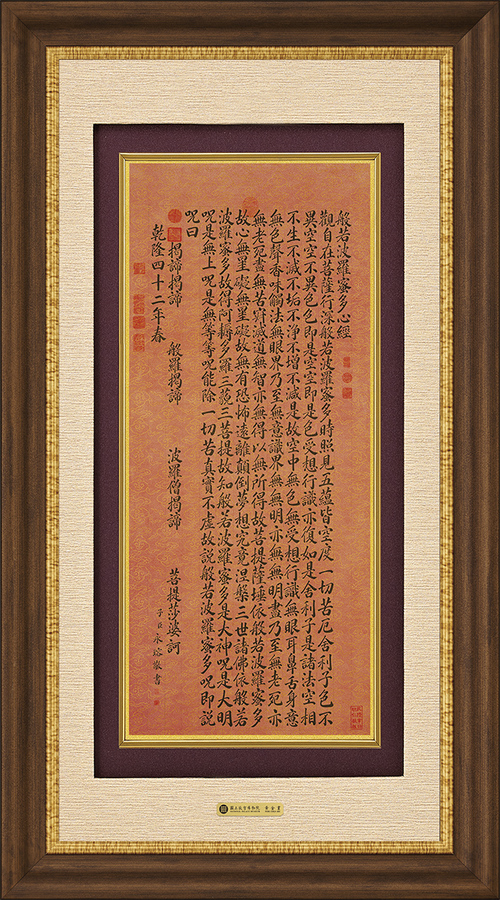 般若波羅蜜多心經
觀自在菩薩行深般若波羅蜜多時照見五蘊皆空度一切苦厄舍利子色不
異空空不異色色即是空空即是色受想行識亦復如是舍利子是諸法空相
不生不滅不垢不淨不增不減是故空中無色無受想行識無眼耳鼻舌身意
無色聲香味觸法無眼界乃至無意識界無無明亦無無明盡乃至無老死亦
無老死盡無苦集滅道無智亦無得以無所得故菩提薩埵依般若波羅蜜多
故心無罣礙無罣礙故無有恐怖遠離顛倒夢想究竟涅槃三世諸佛依般若
波羅蜜多故得阿耨多羅三藐三菩提故知般若波羅蜜多是大神呪是大明
呪是無上呪是無等等呪能除一切苦真實不虛故說般若波羅蜜多呪即說
呪曰
揭諦揭諦 般羅揭諦 波羅僧揭諦 菩提莎婆訶
乾隆四十二年春
子臣永瑢敬書
國立故宮博物院